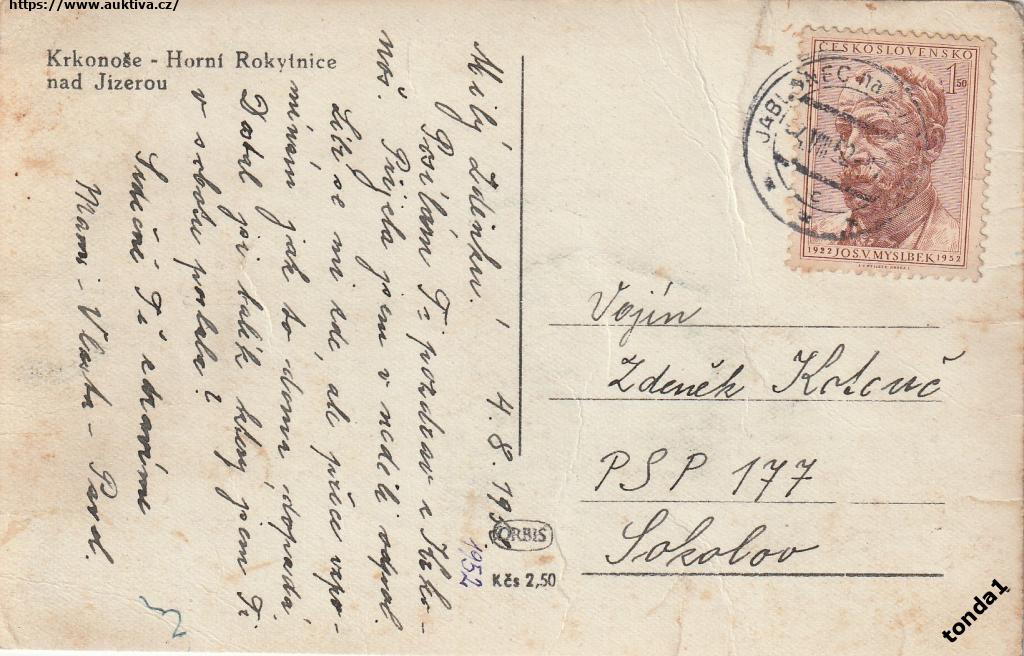 https://www.auktiva.cz/
Krkonoše - Horní Rokytnice
nad Jizerou
ČESKOSLOVENSKO
1 50
1922 JOS.V.MYSLBEK 1952
JABLONEC na
Milý Zdenku. 4. 8. 19
Posílám Ti pozdrav z Krko-
noš. Přijela jsem v neděli odpol.
se mi zde ale práci vzpo-
mínám jak to doma dopadá.
Dostal jsi balík který jsem Ti
v sobotu poslala?
Srdečně Tě zdravíme
Mami - Vlasta - Pavel
1952
ORBIS
Kčs 2,50
Vojín
Zdeněk Kotouč
PSP 177
Sokolov
tonda1